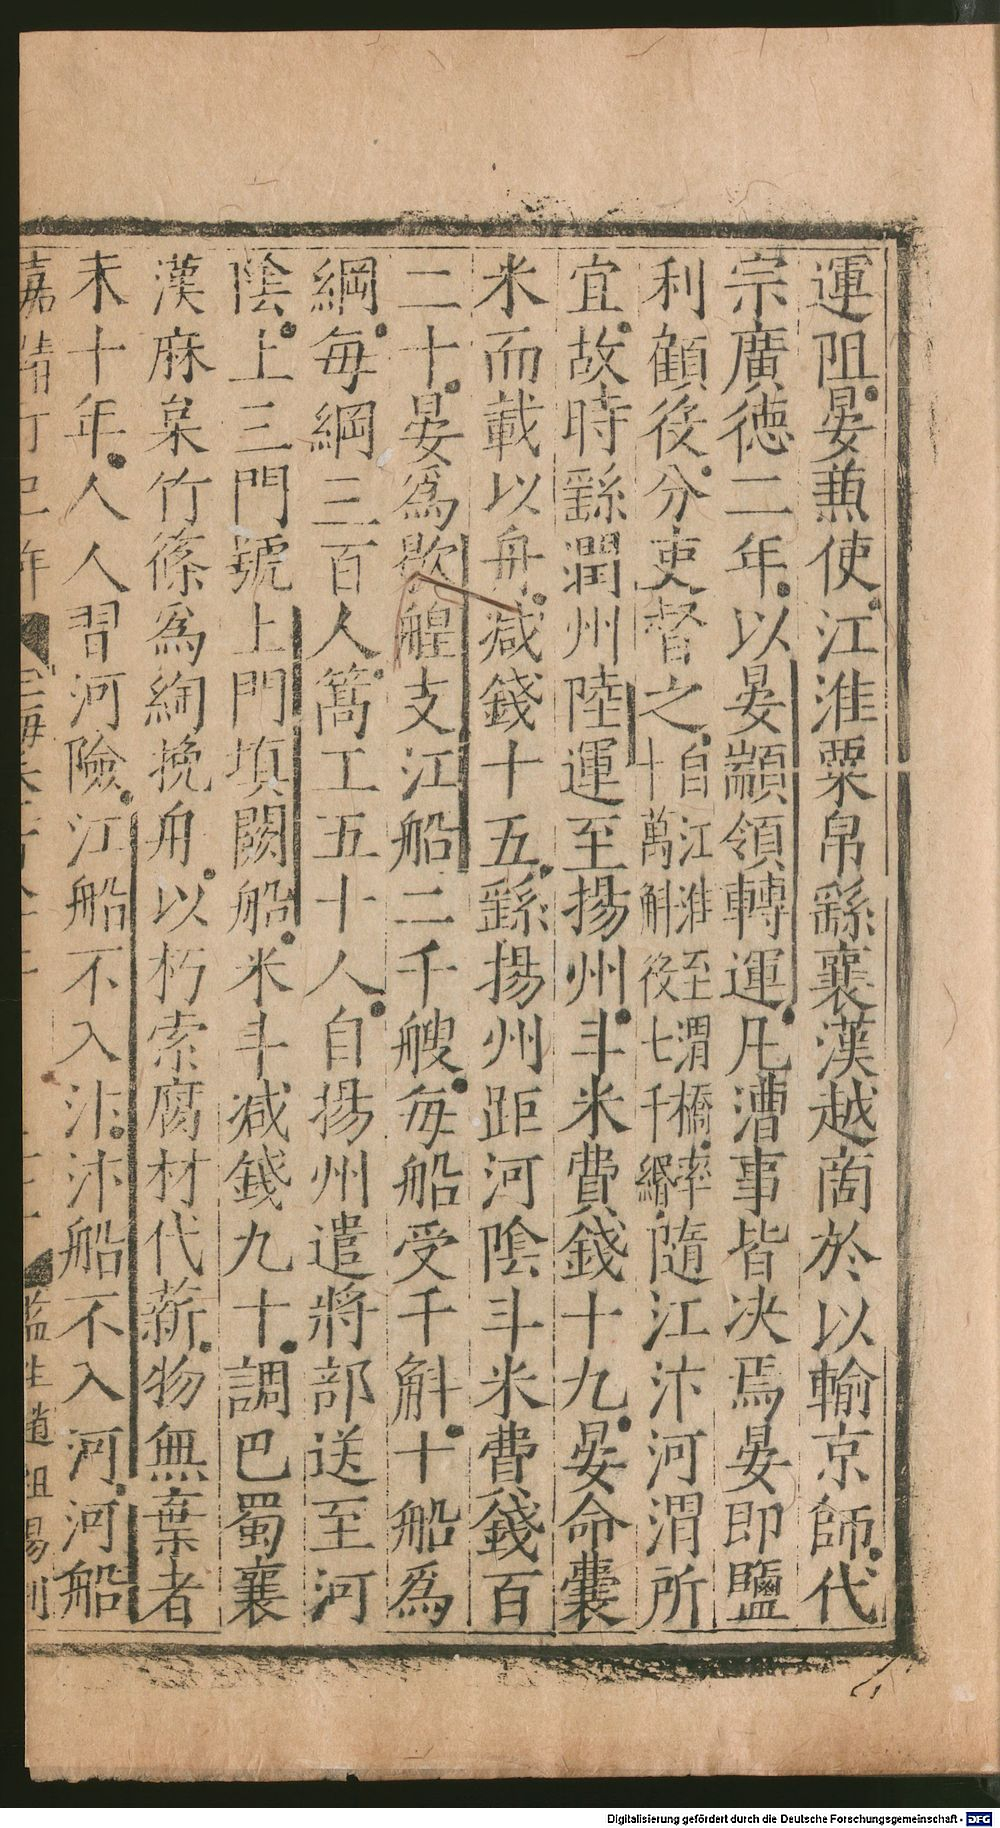 運阻晏兼使江淮粟帛繇襄漢越啇於以輸京師代
宗廣徳二年以晏顓領轉運凡漕事皆决焉晏即鹽
利顧役分吏督之自江淮至渭橋率十萬斛役七千緡隨江汴河渭所
宜故時繇潤州陸運至揚州斗米費錢十九晏命囊
米而載以舟减錢十五繇揚州距河陰斗米費錢百
二十晏爲歇艎支江船二千艘每船受千斛十船爲
綱每綱三百人篙工五十人自揚州遣將部送至河
陰上三門號上門填闕船米斗减錢九十調巴蜀襄
漢麻枲竹篠爲綯挽舟以朽索腐材代薪物無棄者
未十年人人習河險江船不入汴汴船不入河河船
嘉靖丁巳年
監生趙祖
Digitalisierung gefördert durch die Deutsche Forschungsgemeinschaft - DFG